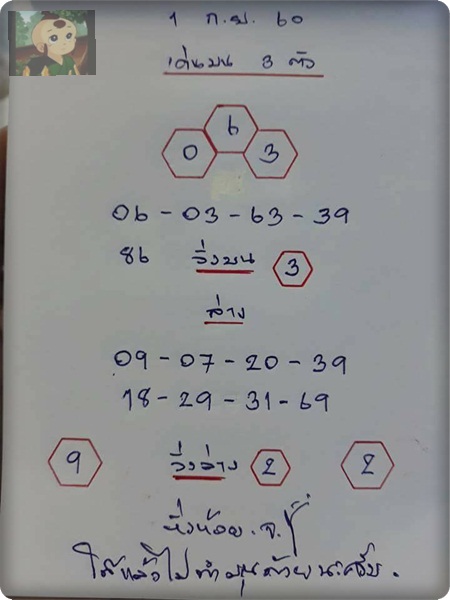 1 ก.ย. 60
เด่นบน 3 ตัว
6
0 3
06 - 03 - 63 - 39
86 วิ่งบน 3
ล่าง
09 - 07 - 20 - 39
18 - 29 - 31 - 69
9 วิ่งล่าง 2 2
ได้แล้วไปทำบุญด้วยนะครับ.